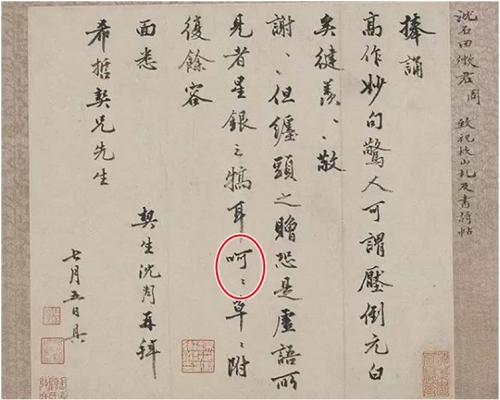 沈石田徵君周 致祝枝山札及書帖
捧誦
高作妙句驚人可謂壓倒元白
矣健羨〻敬
謝〻但纏頭之贈恐是虛語所
見者星銀之犒耳呵〻草〻附
復餘容
面悉
希哲契兄先生
契生沈周再拜
七月五日具